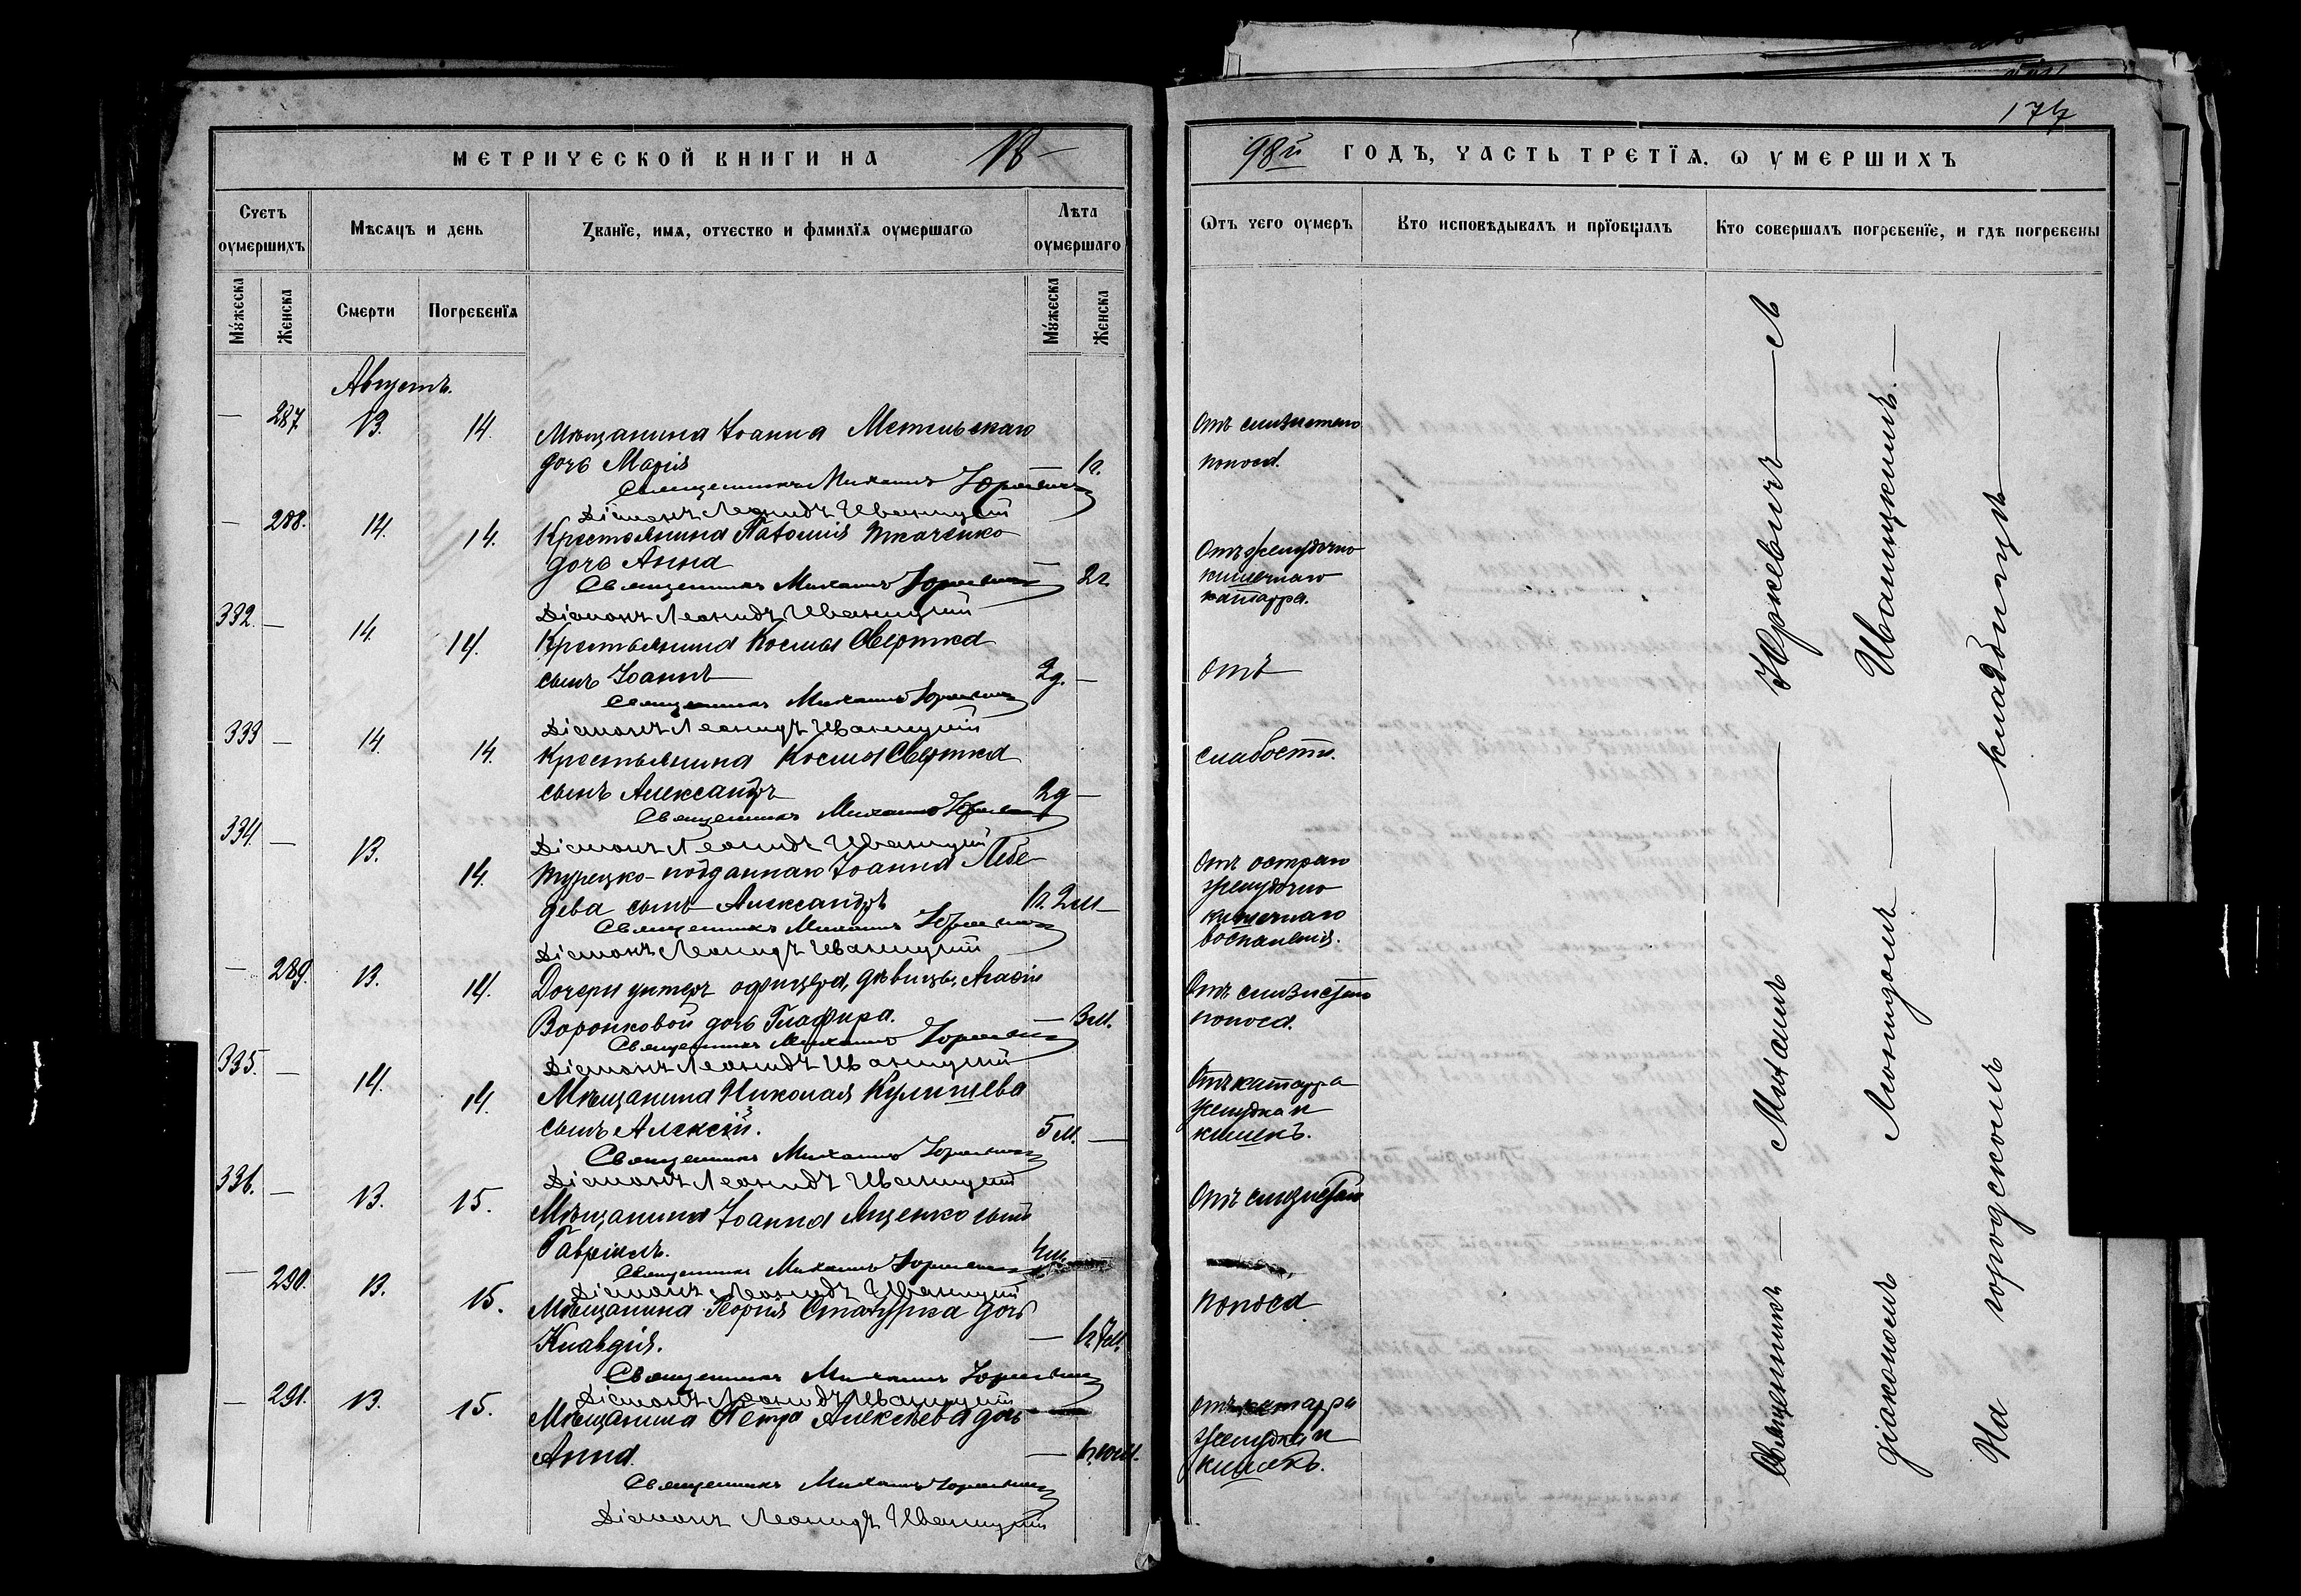 МЕТРИЧЕСКОЙ КНИГИ НА 18
98й ГОДЪ, ЧАСТЬ ТРЕТІѦ, Ѡ УМЕРШИХЪ
177
Счетъ оумершихъ
Мѣсѧцъ и день
Званїе, имѧ, отчество и фамилїѧ оумершагѡ
Лѣта оумершаго
Ѿтъ чего оумеръ
Кто исповѣдывалъ и прїобщалъ
Кто совершалъ погребенїе, и гдѣ погребены
Мужеска
Женска
Смерти
Погребенїѧ
Мужеска
Женска
Августъ.
— 287 13. 14. Мѣщанина Іоанна
дочь Марія — 1г.
Отъ слизистаго
поноса.
Священникъ Михаилъ Юркевичъ
Діаконъ Леонидъ Иваницкій
— 288. 14. 14. Крестьянина Ткаченко
дочь Анна — 2г.
Отъ желудочно
кишечнаго
катарра.
Священникъ Михаилъ Юркевичъ
Діаконъ Леонидъ Иваницкій
332. — 14. 14. Крестьянина Космы Свертка
сынъ Іоаннъ 2д. —
Отъ
Священникъ Михаилъ Юркевичъ
Діаконъ Леонидъ Иваницкій
333 — 14. 14. Крестьянина Космы Свертка
сынъ Александръ 2д —
слабости.
Священникъ Михаилъ Юркевичъ
Діаконъ Леонидъ Иваницкій
334. — 13. 14. Турецко-подданнаго Іоанна Лебе-
дева сынъ Александръ 1г. 2м —
Отъ остраго
желудочно
кишечнаго
воспаленія.
Священникъ Михаилъ Юркевичъ
Діаконъ Леонидъ Иваницкій
— 289. 13. 14. Дочери унтеръ офицера, дѣвицы, Агафіи
Воронковой дочь Глафира. — 3м.
Отъ слизистаго
поноса.
Священникъ Михаилъ Юркевичъ
Діаконъ Леонидъ Иваницкій
335. — 14. 14. Мѣщанина Николая Кулишева
сынъ Алексій. 5м. —
Отъ катарра
желудка и
кишекъ.
Священникъ Михаилъ Юркевичъ
Діаконъ Леонидъ Иваницкій
336. — 13. 15. Мѣщанина Іоанна Ященко сынъ
Гавріилъ. 4м.
Отъ слизистаго
Священникъ Михаилъ Юркевичъ
Діаконъ Леонидъ Иваницкій
— 290. 13. 15. Мѣщанина Георгія дочь
Клавдія. — 1г. 7м.
поноса
Священникъ Михаилъ Юркевичъ
Діаконъ Леонидъ Иваницкій
— 291. 13. 15. Мѣщанина Петра Алексѣева дочь
Анна. — 1г. 10м.
Отъ катарра
желудка и
кишекъ.
Священникъ Михаилъ Юркевичъ
Діаконъ Леонидъ Иваницкій
Священникъ — Михаилъ — Юркевичъ — съ
діакономъ Леонидомъ — Иваницкимъ. —
На городскомъ — кладбищѣ —